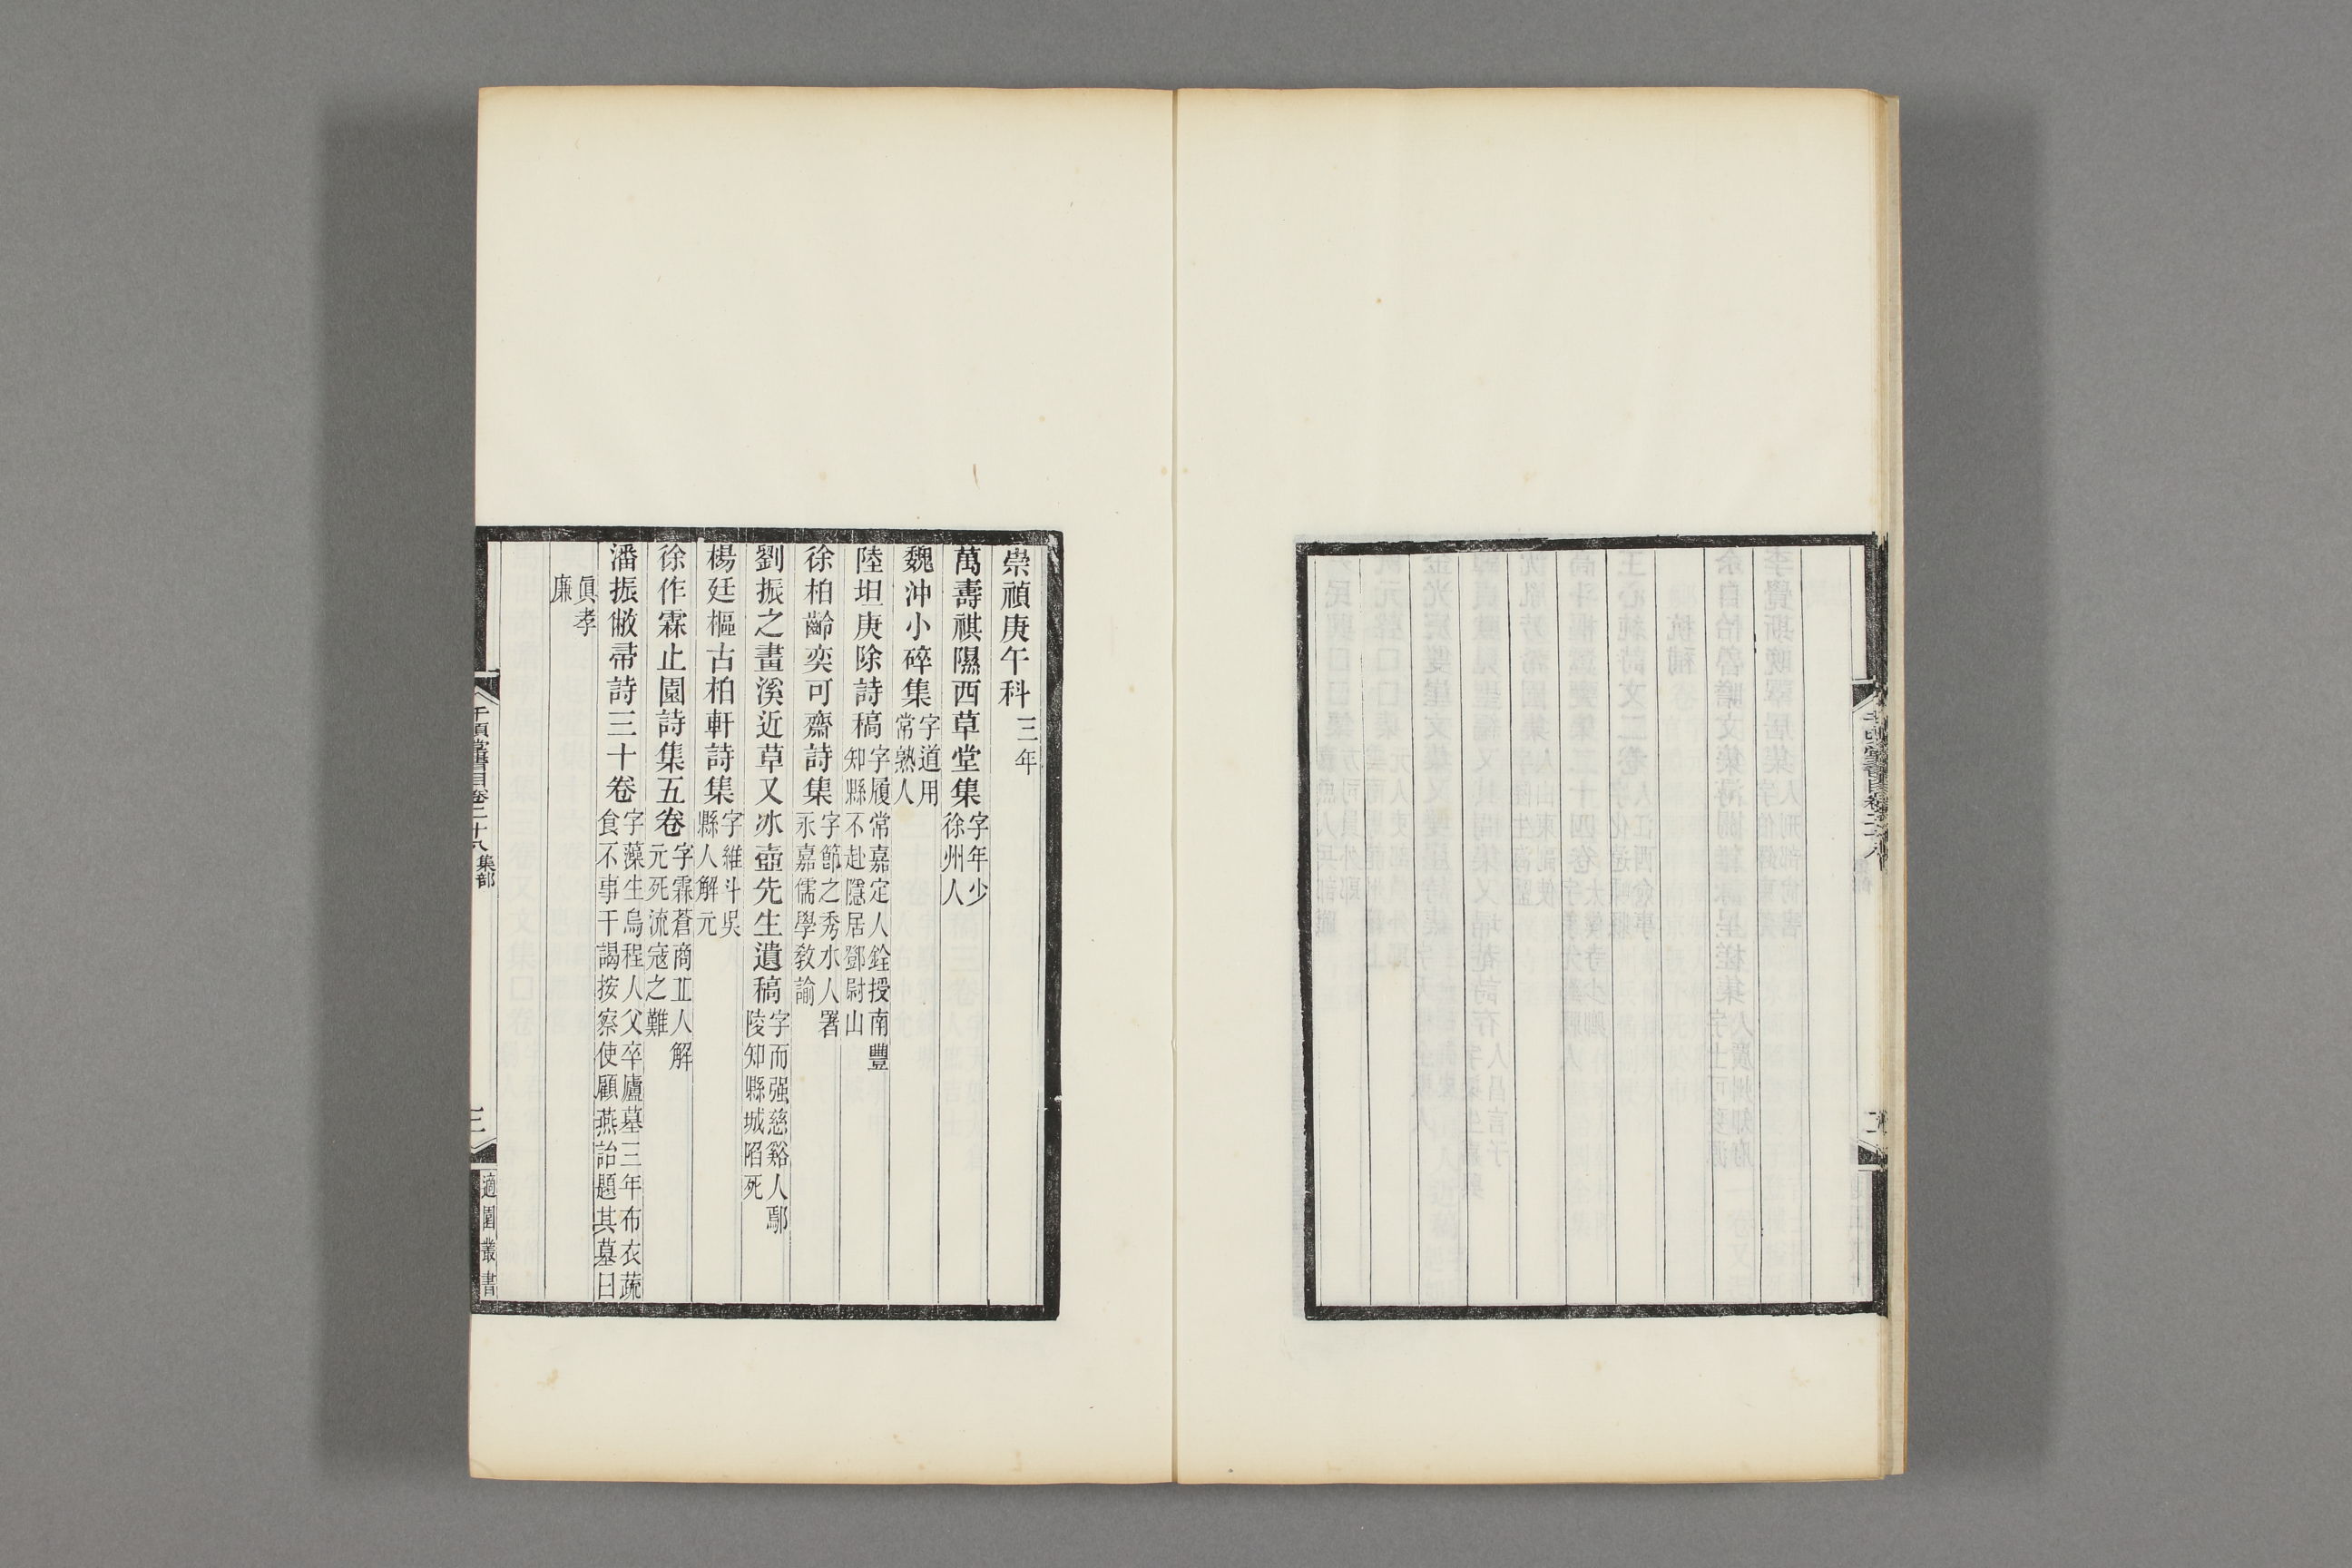 崇禎庚午科三年
萬壽祺隰西草堂集字年少徐州人
魏沖小碎集字道用常熟人
陸坦庚除詩稿字履常嘉定人銓授南豐知縣不赴隱居鄧尉山
徐柏齡奕可齋詩集字節之秀水人署永嘉儒學教諭
劉振之畫溪近草又冰壺先生遺稿字而强慈谿人鄢陵知縣城陷死
楊廷樞古柏軒詩集字維斗吳縣人解元
徐作霖止園詩集五卷字霖蒼商丘人解元死流寇之難
潘振敝帚詩三十卷字藻生烏程人父卒廬墓三年布衣蔬食不事干謁按察使顧燕詒題其墓曰
眞孝廉
千頃堂書目卷二十八 集部
三
適園叢書